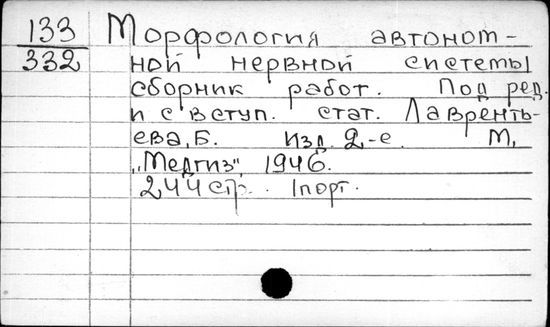 133 Морфология автоном-
332 ной нервной системы
сборник работ. Под ред.
и с вступ. стат. Лавренть-
ева, Б. Изд. 2-е. М,
„Медгиз", 1946.
244 стр. 1 порт.